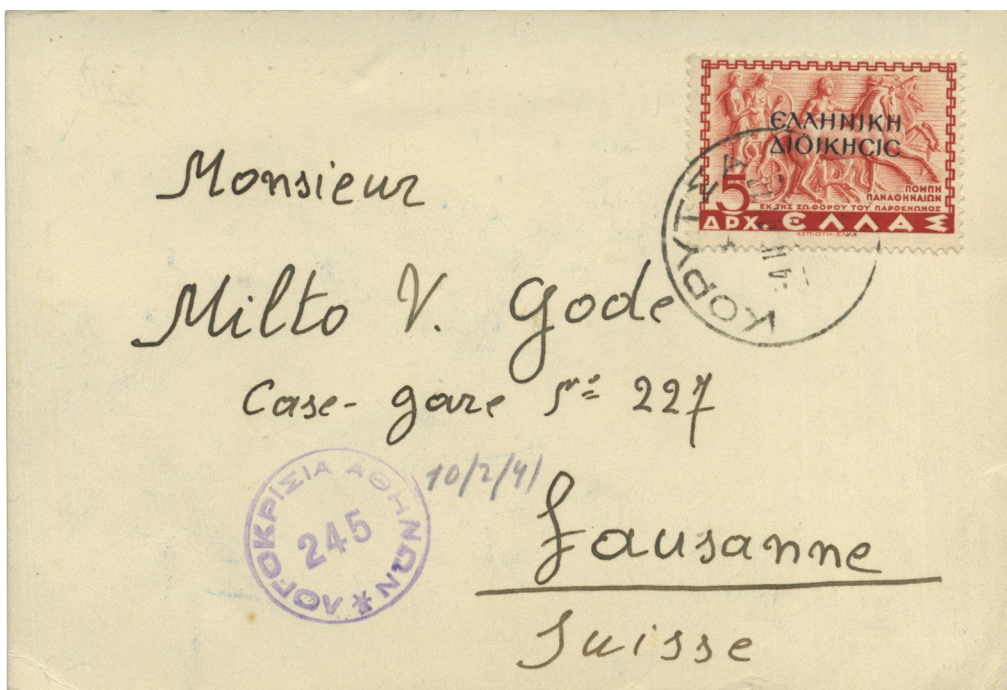 ΕΛΛΗΝΙΚΗ
ΔΙΟΙΚΗCΙC
ΠΟΜΠΗ
ΠΑΝΑΘΗΝΑΙΩΝ
5
ΕΚ ΤΗΣ ΖΩΦΟΡΟΥ ΤΟΥ ΠΑΡΘΕΝΩΝΟΣ
ΔΡΧ. ΕΛΛΑΣ
ΑΣΠΙΩΤΗ-ΕΛΚΑ
ΚΟΡΥΤΣΑ
Monsieur
Milto V. Gode
Case-gare 227
10/2/41
ΛΟΓΟΚΡΙΣΙΑ ΑΘΗΝΩΝ *
245
Lausanne
Suisse